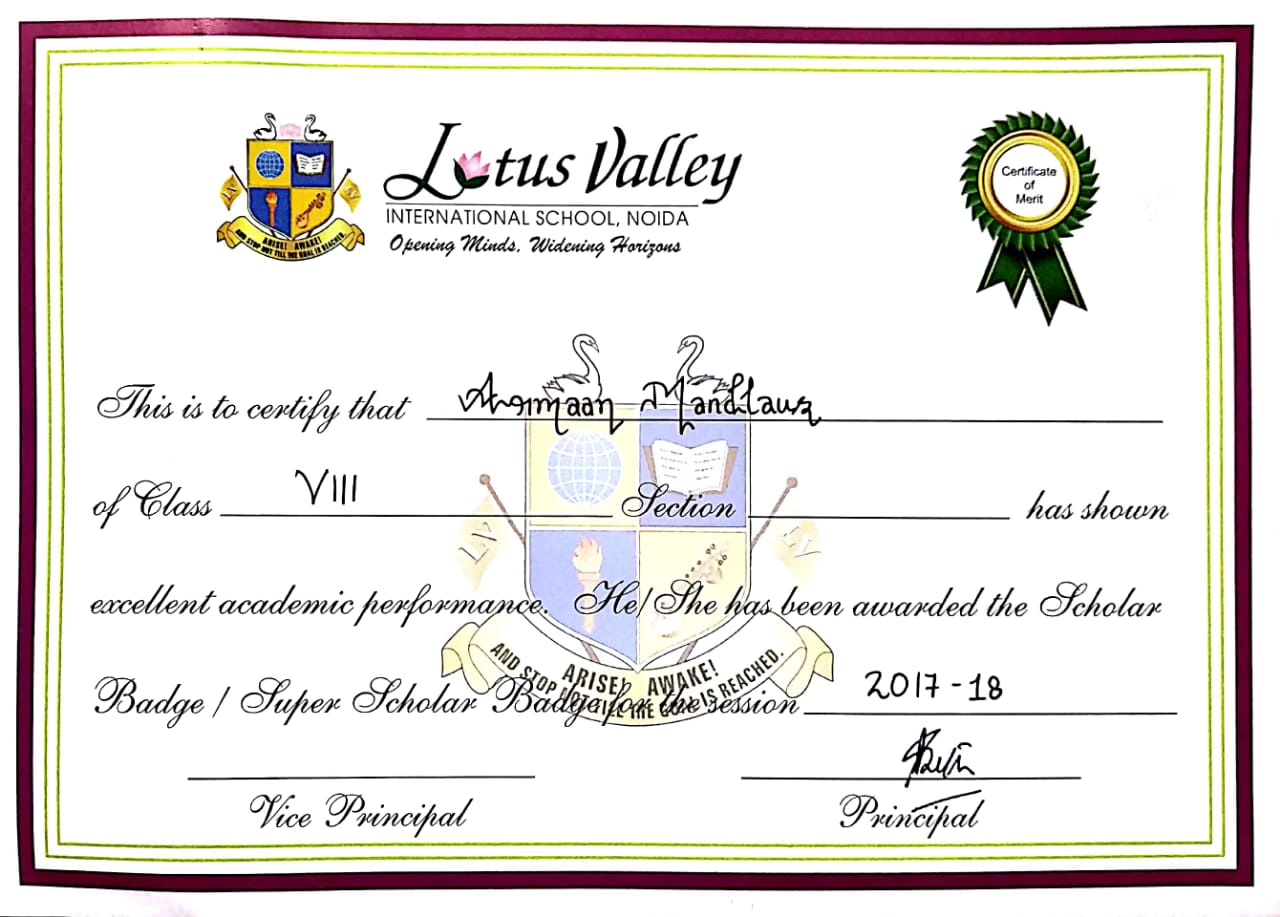 LV LV
ARISE! AWAKE!
AND STOP NOT TILL THE GOAL IS REACHED.
Lotus Valley
INTERNATIONAL SCHOOL, NOIDA
Opening Minds, Widening Horizons
Certificate
of
Merit
This is to certify that
of Class VIII Section has shown
excellent academic performance. He/She has been awarded the Scholar
Badge / Super Scholar Badge for the session 2017-18
LV LV
ARISE! AWAKE!
AND STOP NOT TILL THE GOAL IS REACHED.
Vice Principal Principal